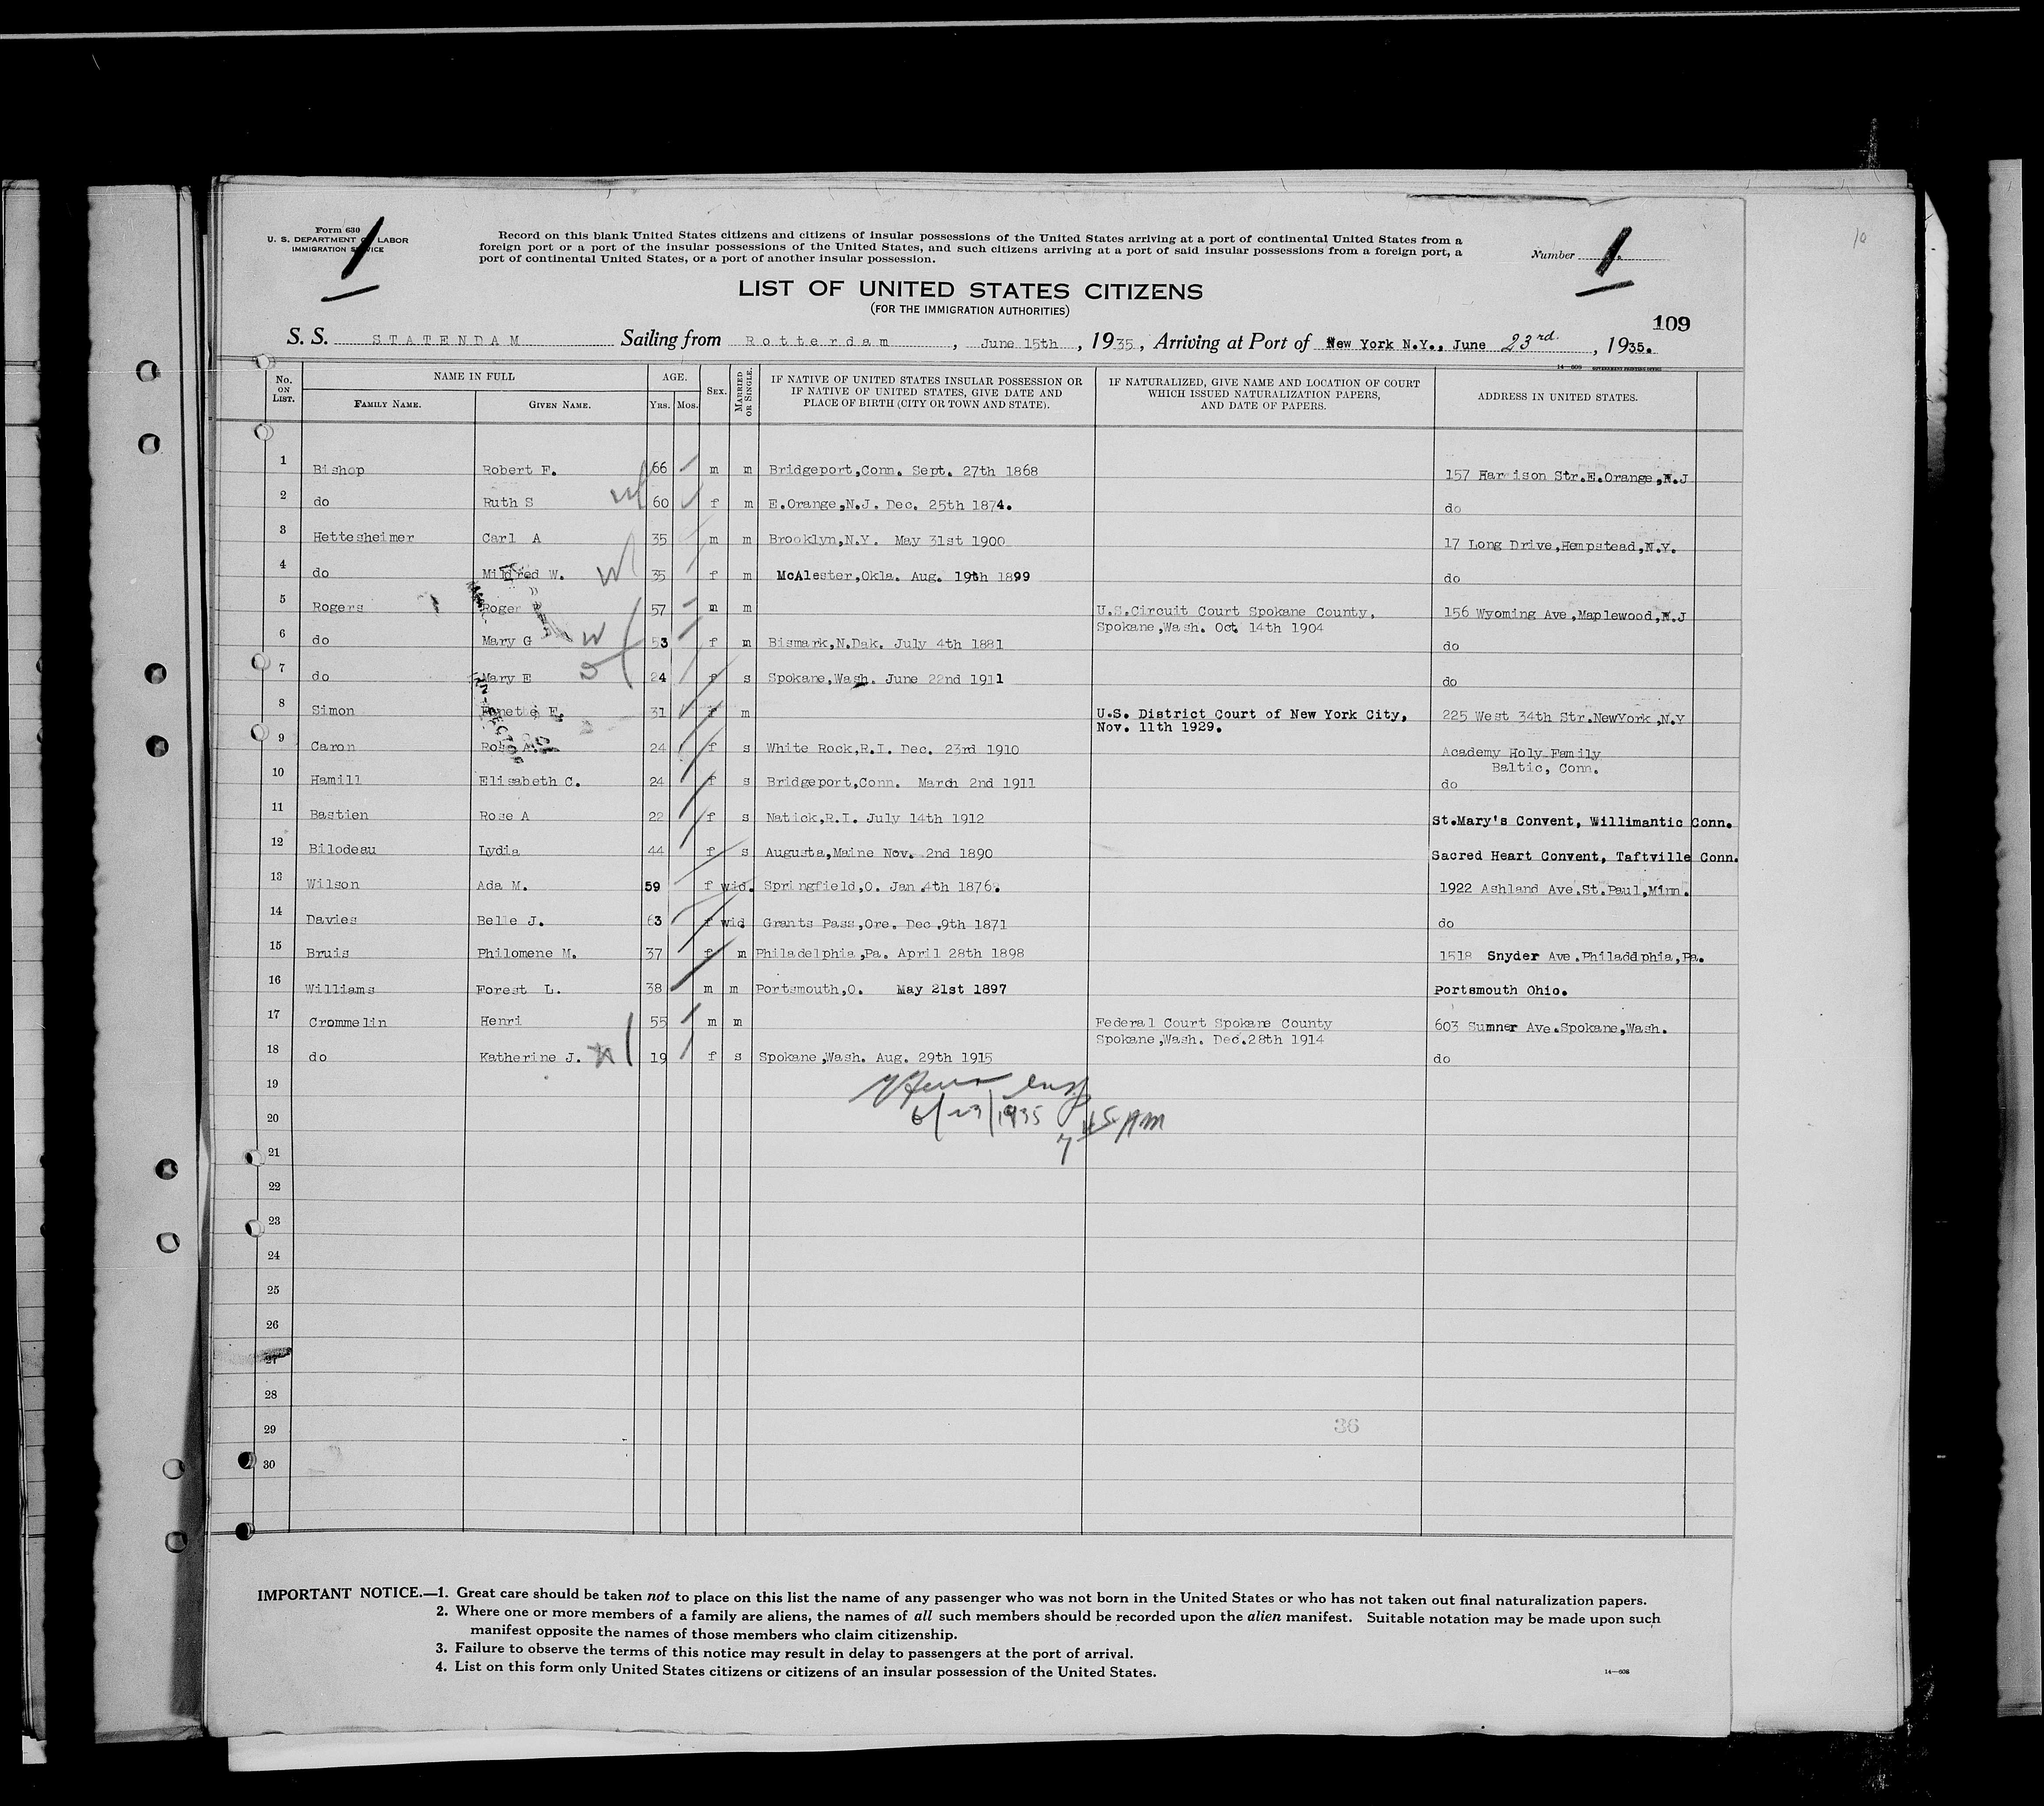 Form 630
U. S. DEPARTMENT OF LABOR
IMMIGRATION SERVICE
1
Record on this blank United States citizens and citizens of insular possessions of the United States arriving at a port of continental United States from a
foreign port or a port of the insular possessions of the United States, and such citizens arriving at a port of said insular possessions from a foreign port, a
port of continental United States, or a port of another insular possession.
Number 1.
LIST OF UNITED STATES CITIZENS
(FOR THE IMMIGRATION AUTHORITIES)
109
S. S. STATENDAM Sailing from Rotterdam, June 15th, 1935, Arriving at Port of New York N.Y., June 23rd., 1935.
No. ON LIST. NAME IN FULL FAMILY NAME. GIVEN NAME. AGE. YRS. MOS. SEX. MARRIED OR SINGLE. IF NATIVE OF UNITED STATES INSULAR POSSESSION OR IF NATIVE OF UNITED STATES, GIVE DATE AND PLACE OF BIRTH (CITY OR TOWN AND STATE). IF NATURALIZED, GIVE NAME AND LOCATION OF COURT WHICH ISSUED NATURALIZATION PAPERS, AND DATE OF PAPERS. ADDRESS IN UNITED STATES.
1 Bishop Robert F. 66 m m Bridgeport,Conn. Sept. 27th 1868 157 Harrison Str.E.Orange,N.J
2 do Ruth S 60 f m E.Orange,N.J. Dec. 25th 1874. do
3 Hettesheimer Carl A 35 m m Brooklyn,N.Y. May 31st 1900 17 Long Drive,Hempstead,N.Y.
4 do Mildred W. 35 f m McAlester,Okla. Aug. 19th 1899 do
5 Rogers Roger 57 m m U.S.Circuit Court Spokane County, 156 Wyoming Ave,Maplewood,N.J
Spokane,Wash. Oct. 14th 1904
6 do Mary G 53 f m Bismark,N.Dak. July 4th 1881 do
7 do Mary E 24 f s Spokane,Wash. June 22nd 1911 do
8 Simon E. 31 f m U.S. District Court of New York City, 225 West 34th Str.NewYork,N.Y
Nov. 11th 1929.
9 Caron Rose A. 24 f s White Rock,R.I. Dec. 23rd 1910 Academy Holy Family
Baltic, Conn.
10 Hamill Elisabeth C. 24 f s Bridgeport,Conn. March 2nd 1911 do
11 Bastien Rose A 22 f s Natick,R.I. July 14th 1912 St.Mary's Convent, Willimantic Conn.
12 Bilodeau Lydia 44 f s Augusta,Maine Nov. 2nd 1890 Sacred Heart Convent, Taftville Conn.
13 Wilson Ada M. 59 f wid. Springfield,O. Jan.4th 1876. 1922 Ashland Ave.St.Paul,Minn.
14 Davies Belle J. 63 f wid Grants Pass,Ore. Dec.9th 1871 do
15 Bruis Philomene M. 37 f m Philadelphia,Pa. April 28th 1898 1518 Snyder Ave.Philadelphia,Pa.
16 Williams Forest L. 38 m m Portsmouth,O. May 21st 1897 Portsmouth Ohio.
17 Crommelin Henri 55 m m Federal Court Spokane County 603 Sumner Ave.Spokane,Wash.
Spokane,Wash. Dec.28th 1914
18 do Katherine J. 19 f s Spokane,Wash. Aug. 29th 1915 do
19
6/23/1935
20
7 45 AM
21
22
23
24
25
26
27
28
29
36
30
IMPORTANT NOTICE.—1. Great care should be taken not to place on this list the name of any passenger who was not born in the United States or who has not taken out final naturalization papers.
2. Where one or more members of a family are aliens, the names of all such members should be recorded upon the alien manifest. Suitable notation may be made upon such
manifest opposite the names of those members who claim citizenship.
3. Failure to observe the terms of this notice may result in delay to passengers at the port of arrival.
4. List on this form only United States citizens or citizens of an insular possession of the United States.
14—608